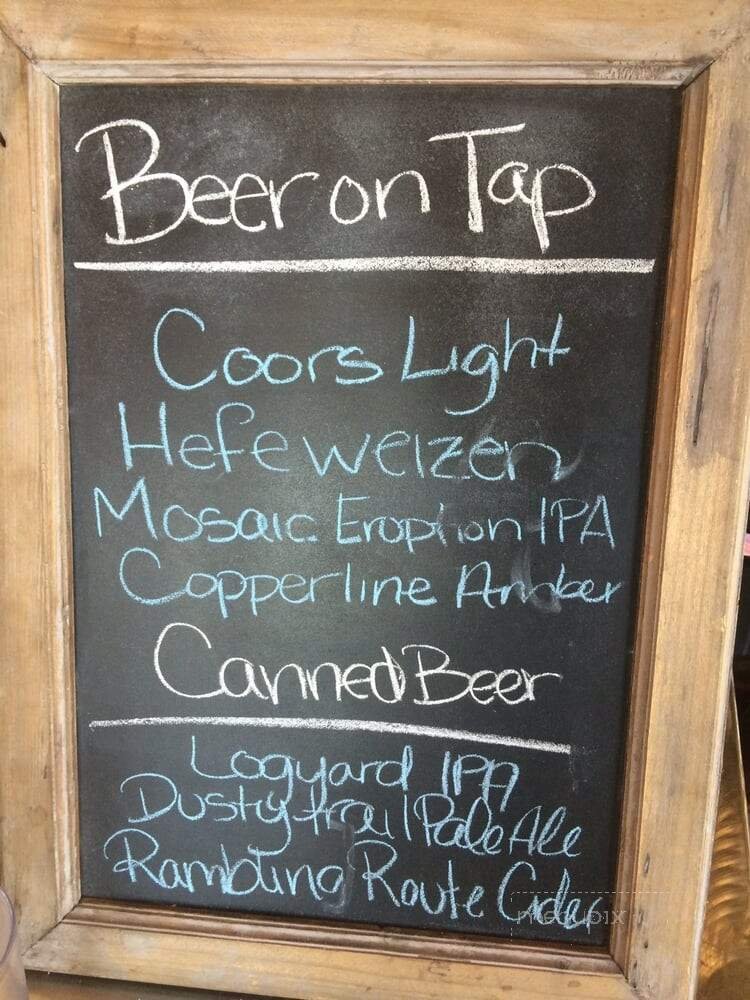 Beer on Tap
Coors Light
Hefeweizen
Mosaic Eruption IPA
Copperline Amber
Canned Beer
Logyard IPA
Dusty trail Pale Ale
Rambling Route Cider
menupix